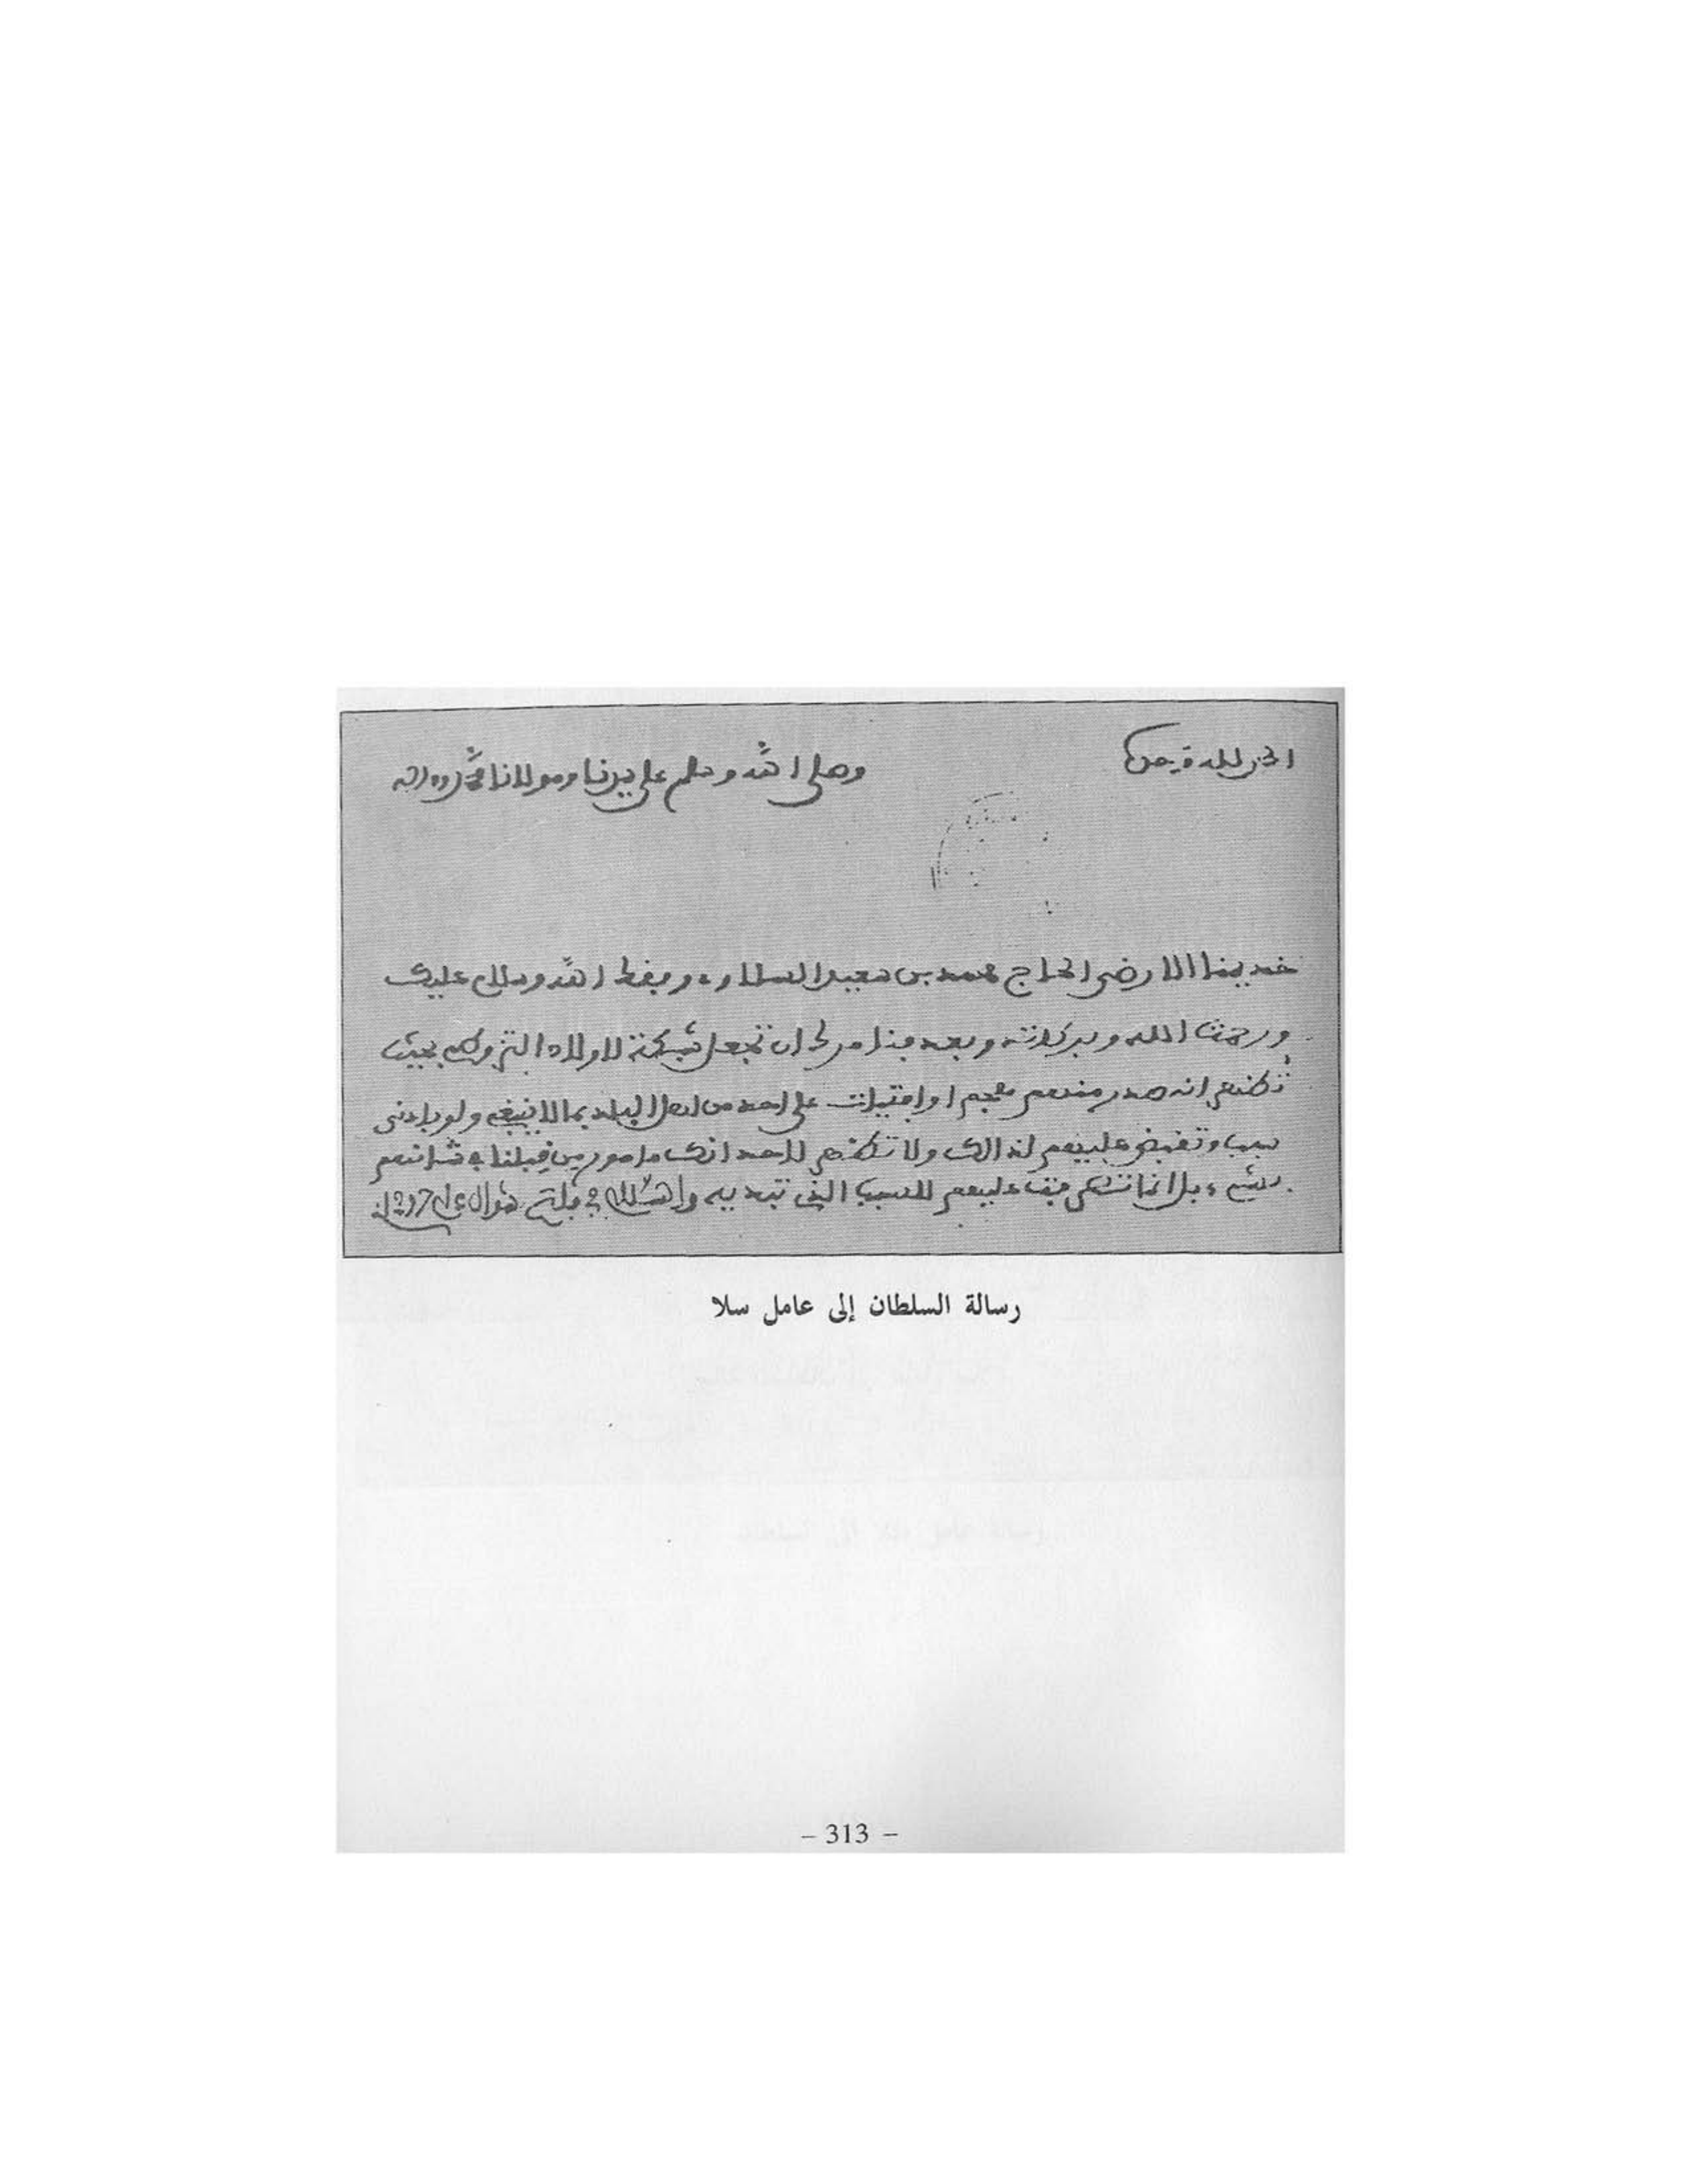 الحمد لله وحده
وصلى الله وسلم على سيدنا ومولانا محمد وءاله
خديمنا الارضى الحاج محمد بن سعيد السلاوي وفقك الله وسلام عليك
ورحمت الله وبركاته وبعد فنامرك ان تجعل شبكة لاولاد التزروكي بحيث
تظهر انه صدر منهم او افتيات على احد من اهل البلد بما لا ينبغي ولو بادنى
سبب وتقبض عليهم لذالك ولا تظهر لاحد انك مامور من قبلنا في شانهم
بشيء بل انما تقبض عليهم للسبب الذي تبديه والسلام في شوال عام
رسالة السلطان إلى عامل سلا
– 313 –